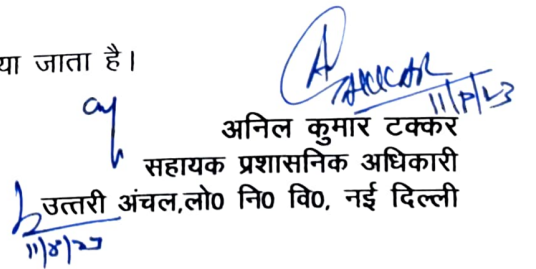 या जाता है।
अनिल कुमार टक्कर
सहायक प्रशासनिक अधिकारी
उत्तरी अंचल,लो0 नि0 वि0, नई दिल्ली
11/8/23